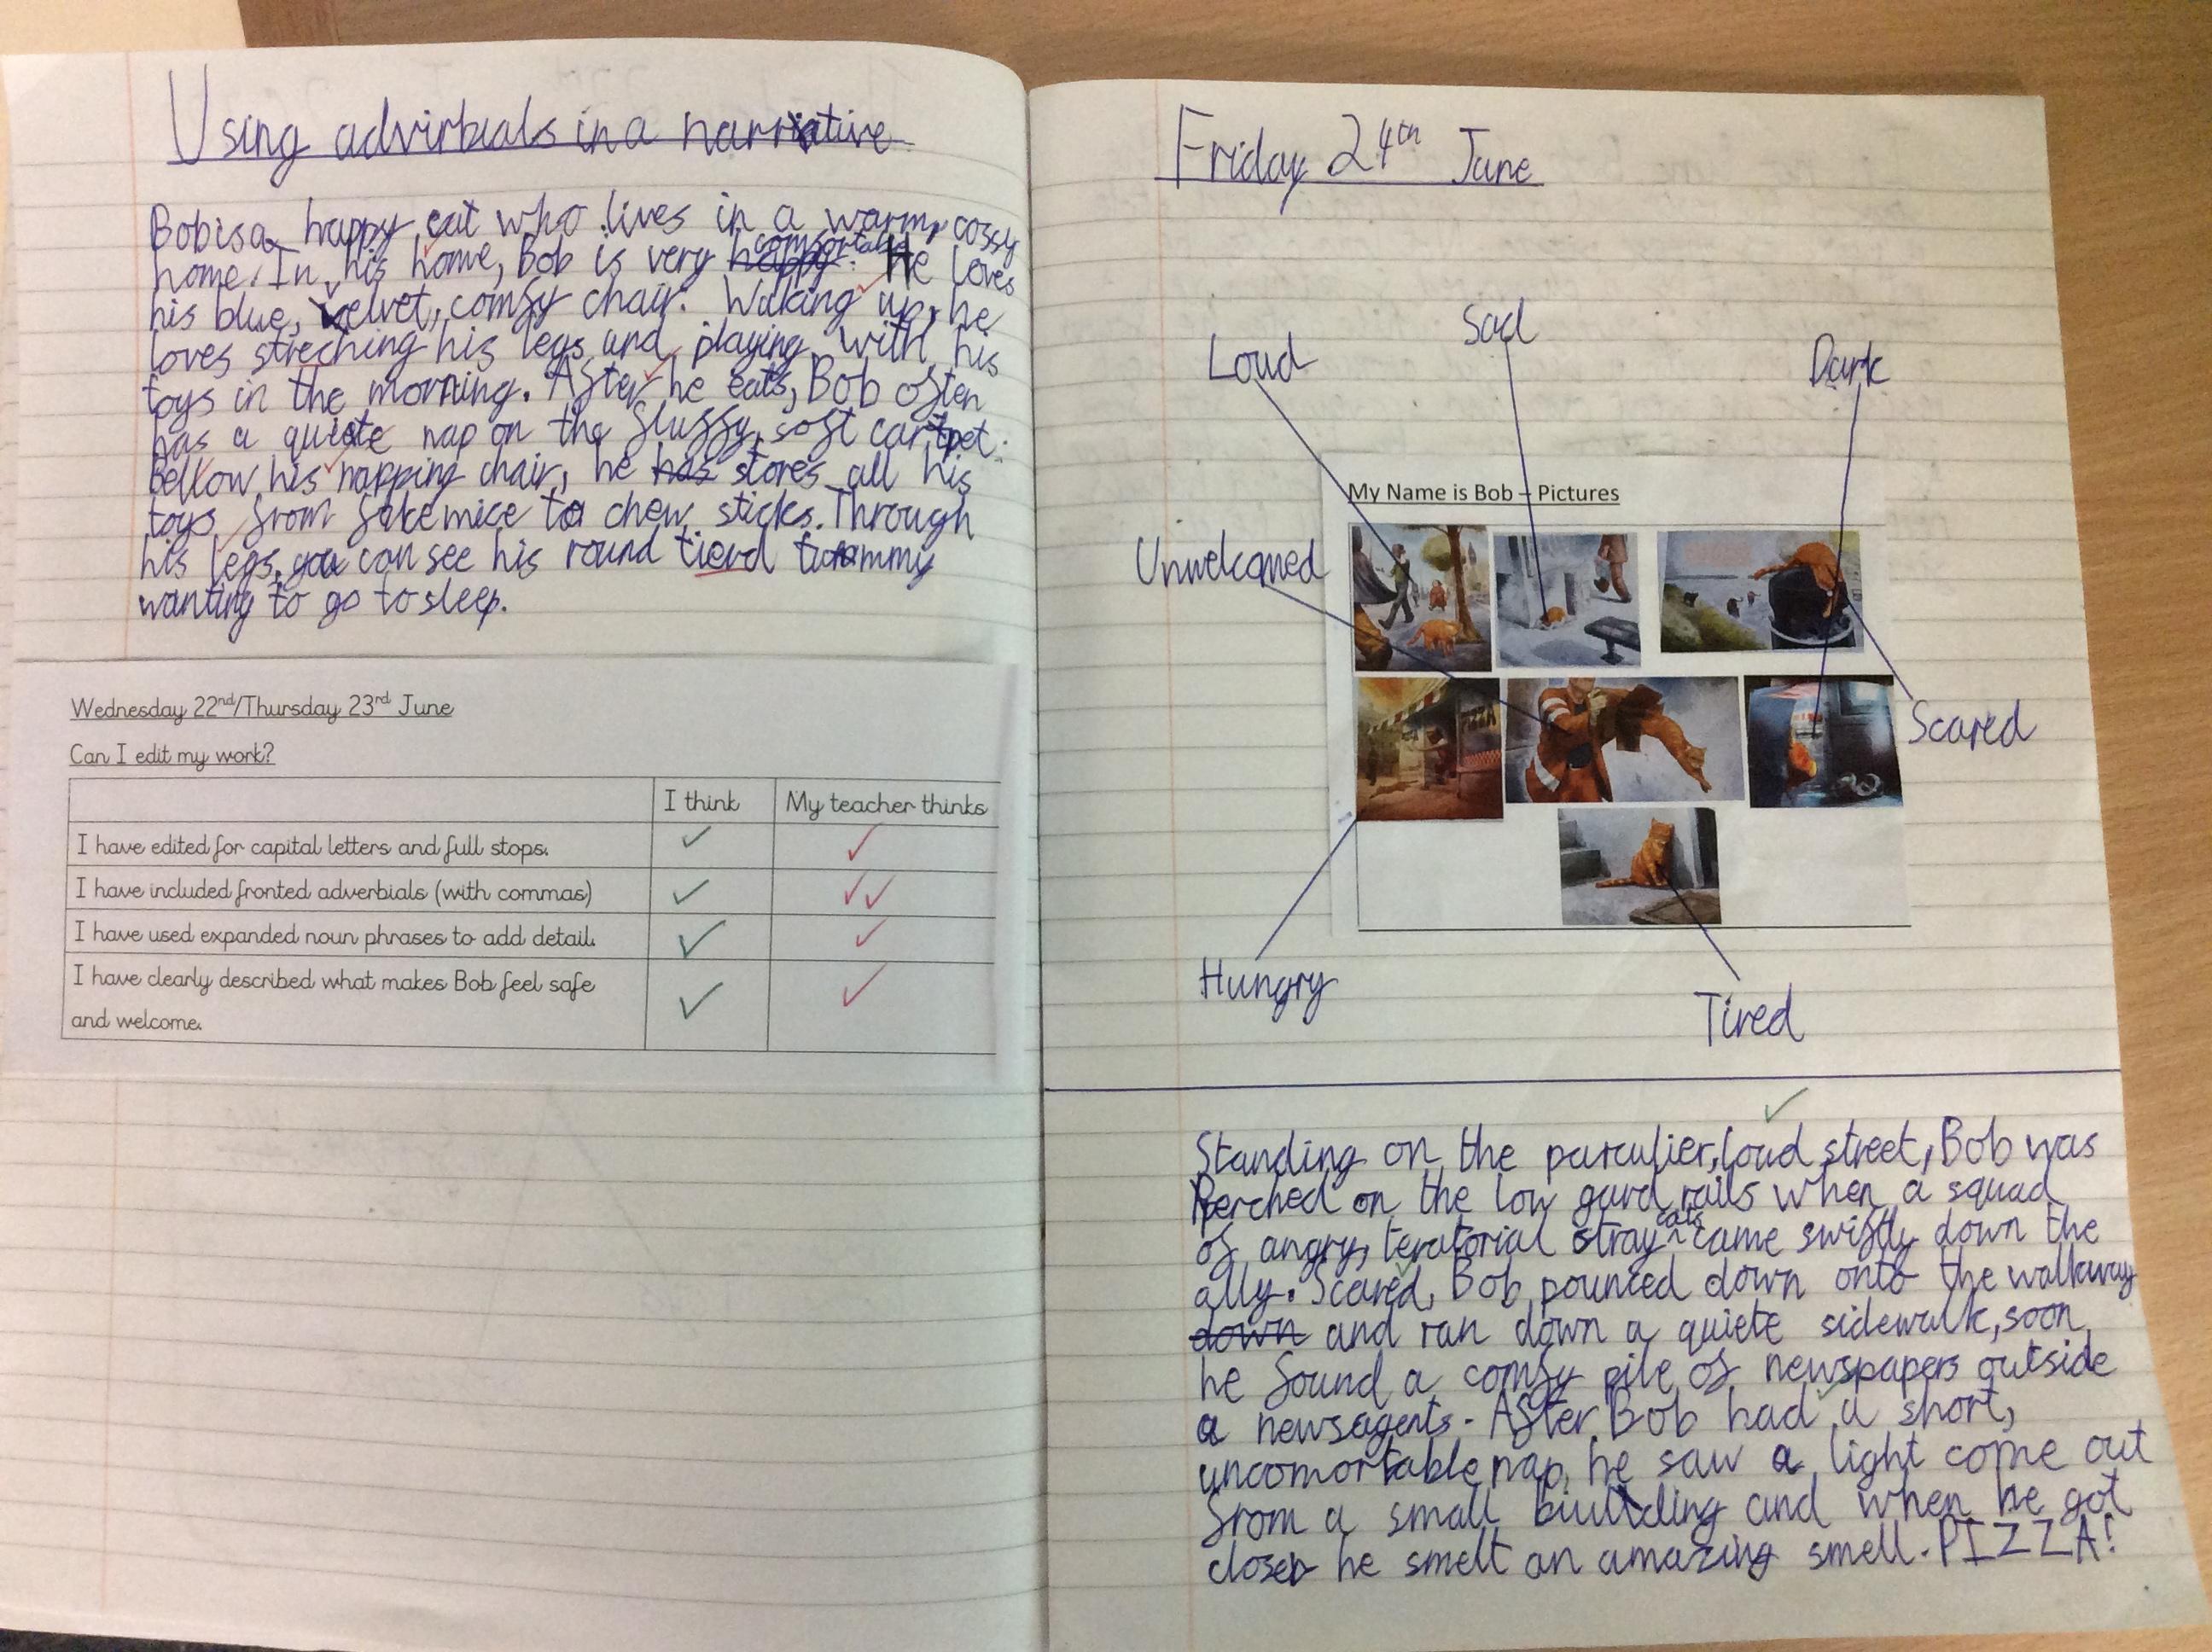 Using advirbials in a narrative
Bob is a happy cat who lives in a warm, cossy
home. In his home, Bob is very happy comfortable. He loves
his blue, velvet, comfy chair. Waking up, he
loves streching his legs and playing with his
toys in the morning. After he eats, Bob often
has a quiete nap on the fluffy, soft carpet.
Bellow his napping chair, he has stores all his
toys from fake mice to chew sticks. Through
his legs, you can see his round tierd tummy
wanting to go to sleep.
Wednesday 22nd/Thursday 23rd June
Can I edit my work?
I think My teacher thinks
I have edited for capital letters and full stops.
I have included fronted adverbials (with commas)
I have used expanded noun phrases to add detail.
I have clearly described what makes Bob feel safe
and welcome.
Friday 24th June
Sad
Loud
Dark
My Name is Bob – Pictures
Unwelcomed
PIZZA
Scared
Hungry
Tired
Standing on the parculier, loud street, Bob was
perched on the low gard rails when a squad
of angry, teratorial stray cats came swiftly down the
ally. Scared, Bob pounced down onto the walkway
down and ran down a quiete sidewalk, soon
he found a comfy pile of newspapers outside
a newsagents. After Bob had a short,
uncomortable nap, he saw a light come out
from a small building and when he got
closer he smelt an amazing smell. PIZZA!